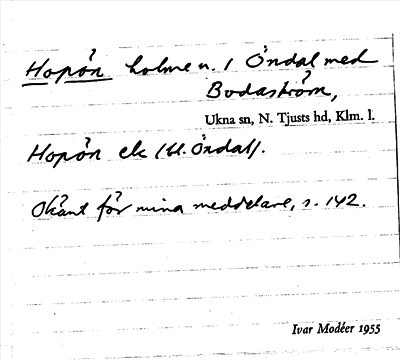 Hopön holme u. 1 Öndal med
Bodaström,
Ukna sn, N. Tjusts hd, Klm. l.
Hopön ek (bl. Öndal).
Okänt för mina meddelare, s. 142.
Ivar Modéer 1955